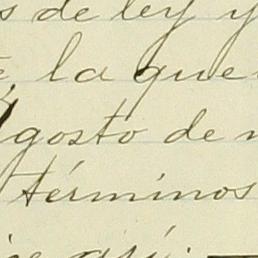 s de ley y
la que
gosto de
términos
así.